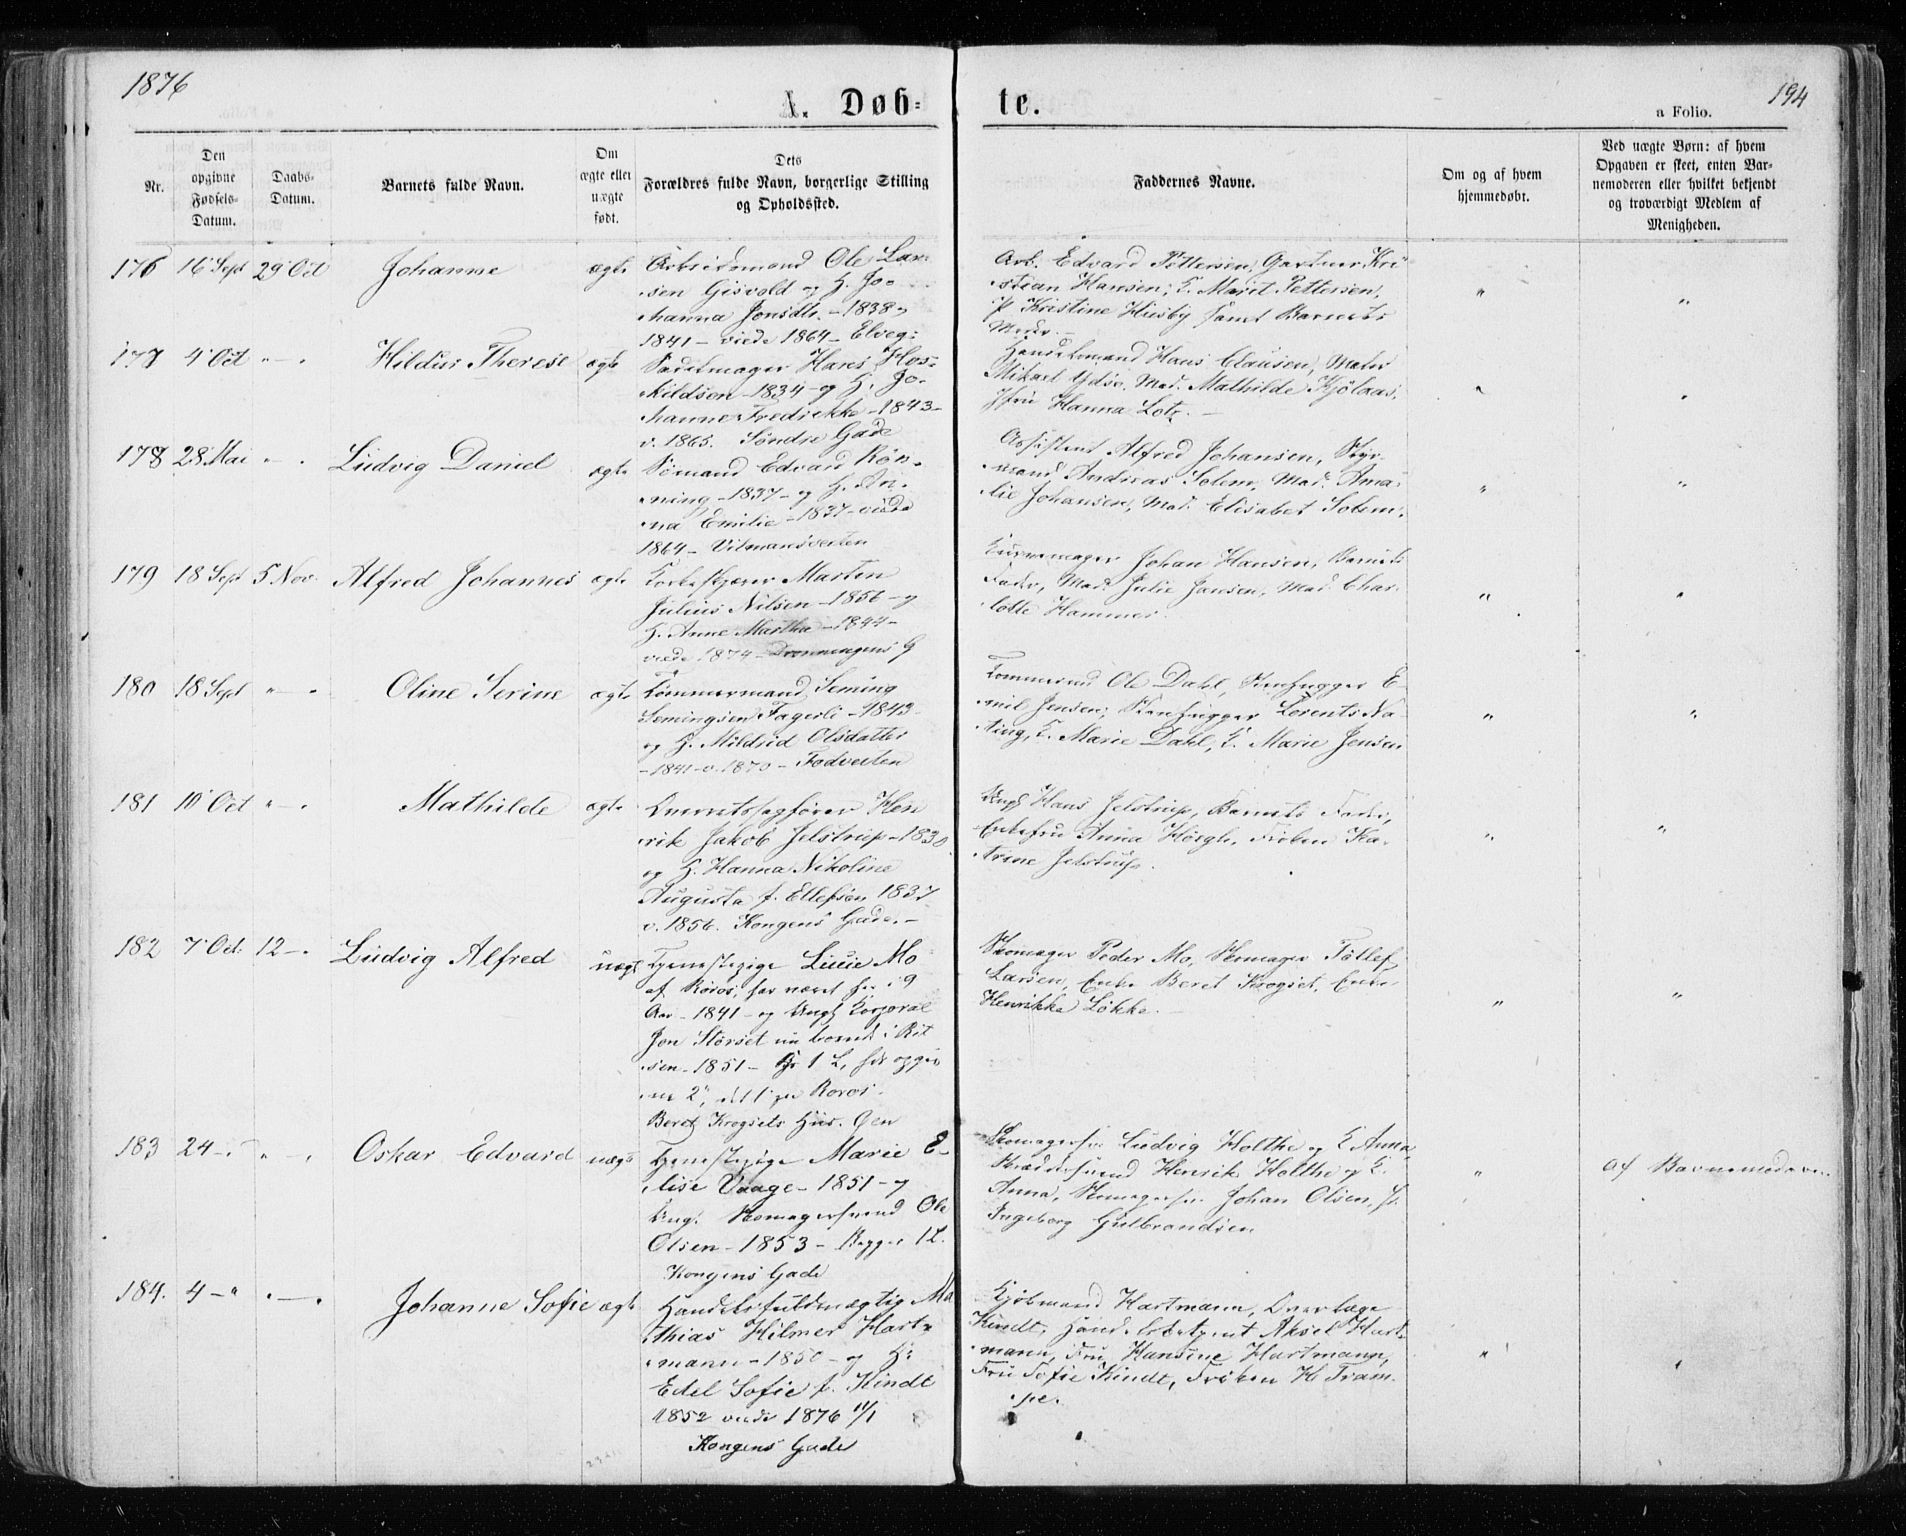 1876
A. Døb-
te.
194
a Folio.
Nr.
Den opgivne Fødsels-Datum.
Daabs-Datum.
Barnets fulde Navn.
Om ægte eller uægte født.
Dets Forældres fulde Navn, borgerlige Stilling og Opholdssted.
Faddernes Navne.
Om og af hvem hjemmedøbt.
Ved uægte Børn: af hvem Opgaven er skeet, enten Barnemoderen eller hvilket bekjendt og troværdigt Medlem af Menigheden.
176 16 Sept 29 Oct Johanne ægte
Arbeidsmand Ole Lar-
sen Gisvold og H. Jo-
hanna Jonsdtr. - 1838 og
1841 - viede 1864 - Elveg:
Arb. Edvard Pettersen, Gartner Kri-
stian Hansen; K. Marit Pettersen,
P Kristine Husby samt Barnets
Moder. -
177 4 Oct " - Hildur Therese ægte
Sadelmager Hans Hos-
kildsen - 1834 - og H. Jo-
hanne Fredrikke - 1843 -
v. 1865. Søndre Gade
Handelsmand Hans Clausen, Maler
Mikael Ydsø, Mad. Mathilde Kjölaas,
Jfru Hanna Lotz. -
178 28 Mai " - Ludvig Daniel ægte
Sømand Edvard Røn-
ning - 1837 - og H. An-
na Emilie - 1837 - viede
1864 - Vilmansveiten
Assistent Alfred Johansen, Styr-
mand Andreas Solem, Mad. Ama-
lie Johansen, Mad. Elisabet Solem.
179 18 Sept 5 Nov. Alfred Johannes ægte
Marten
Julius Nilsen - 1856 - og
H. Anne Martha - 1844 -
viede 1874 - Dronningens G
Johan Hansen, Barnets
Fader, Mad. Julie Jansen, Mad. Char-
lotte Hammer.
180 18 Sept " - " Oline Serine ægte
Tømmermand Seming
Semingsen Fagerli - 1843 -
og H. Mildrid Olsdatter
- 1841 - v. 1870 - Fodveiten
Tommermd Ole Dahl, Stenhugger E-
mil Jensen; Stenhugger Lorents No-
ting, K. Marie Dahl, K. Marie Jensen
181 10 Oct " - Mathilde ægte
Overretssagfører Hen
rik Jakob Jelstrup - 1830
og H. Hanna Nikoline
Augusta f. Ellefsen 1837
v. 1856. Kongens Gade. -
Ungk Hans Jelstrup, Barnets Fader,
Enkefru Anna Høegh, Frøken Ka-
trine Jelstrup.
182 7 Oct 12 - Ludvig Alfred uægt
Tjenestepige Mo
af Røros, har været her i 9
Aar - 1841 - og Ungk Korporal
Jon Størset nu boende i Ris
sen - 1851 - 1 L,
2", Roros.
Beret Krogsets Hus. Gen
Skomager Peder Mo, Skomager Tollef
Larsen, Enke Beret Krogset, Enke
Henrikke Løkke. -
183 24 - " - " Oskar Edvard uægte
Tjenestepige Marie E-
lise Vaage - 1851 - og
Ungk. Skomagersvend Ole
Olsen - 1853 - Begges 1 L.
Kongens Gade
Skomagersv. Ludvig Holthe og K Anna,
Skrædersvend Henrik Holthe og K.
Anna, Skomagersv. Johan Olsen, P.
Ingeborg Gulbrandsen
af Barnemoderen
184. 4 - " " - " Johanne Sofie ægte
Handelsfuldmægtig Ma
thias Hilmer Hart-
mann - 1850 - og H:
Edel Sofie f. Kindt
1852 viede 1876 11/1
Kongens Gade
Kjøbmand Hartmann, Overlæge
Kindt, Handelsbetjent Aksel Hart-
mann, Fru Hansine Hartmann,
Fru Sofie Kindt, Frøken H Tram-
pe.